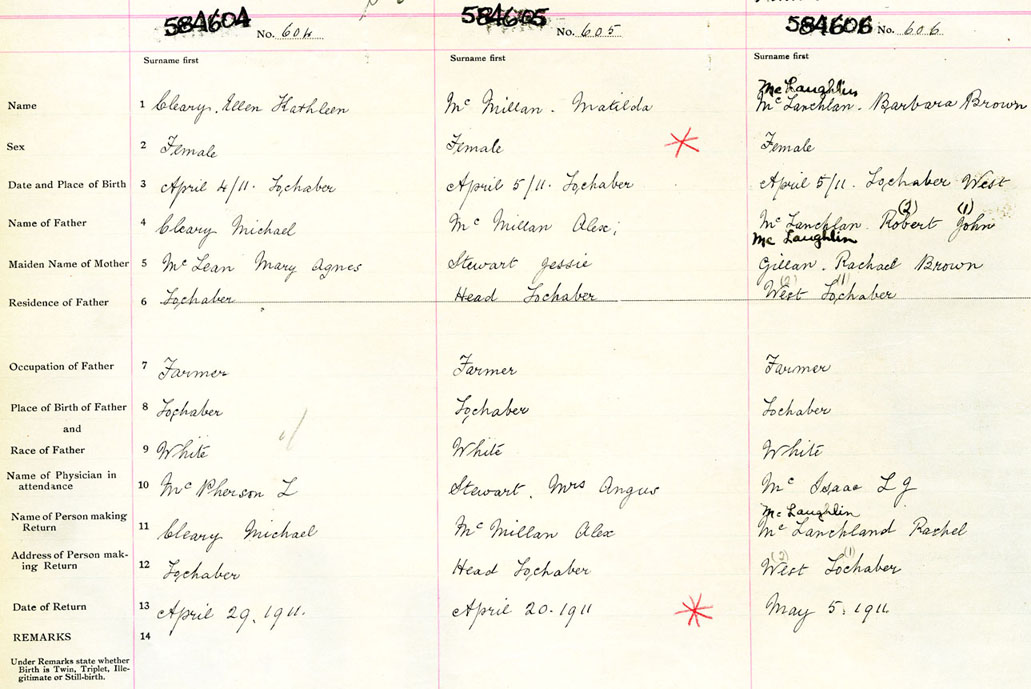 584604 No. 604 584605 No. 605 584606 No. 606
Surname first Surname first Surname first
Mc Laughlin
Name 1 Cleary. Ellen Kathleen Mc Millan. Matilda Mc Lanchlan. Barbara Brown
Sex 2 Female Female Female
Date and Place of Birth 3 April 4/11. Lochaber April 5/11. Lochaber April 5/11. Lochaber West
(2) (1)
Name of Father 4 Cleary Michael Mc Millan Alex; Mc Lanchlan. Robert John
Mc Laughlin
Maiden Name of Mother 5 Mc Lean Mary Agnes Stewart Jessie Gillan. Rachael Brown
(2) (1)
Residence of Father 6 Lochaber Head Lochaber West Lochaber
Occupation of Father 7 Farmer Farmer Farmer
Place of Birth of Father 8 Lochaber Lochaber Lochaber
and
Race of Father 9 White White White
Name of Physician in
attendance 10 Mc Pherson L Stewart. Mrs Angus Mc Isaac L J
Mc Laughlin
Name of Person making
Return 11 Cleary Michael Mc Millan Alex Mc Lanchland Rachel
(2) (1)
Address of Person mak-
ing Return 12 Lochaber Head Lochaber West Lochaber
Date of Return 13 April 29, 1911. April 20. 1911 May 5. 1911
REMARKS 14
Under Remarks state whether
Birth is Twin, Triplet, Ille-
gitimate or Still-birth.